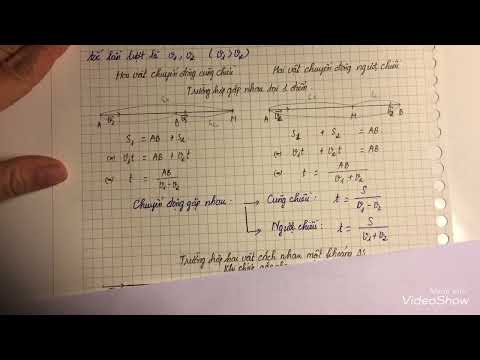 tốc lần lượt là v₁, v₂ (v₁ > v₂)
Hai vật chuyển động cùng chiều
Hai vật chuyển động ngược chiều
Trường hợp gặp nhau tại 1 điểm
A B M
A M B
S₁ = AB + S₂
S₁ + S₂ = AB
(=) v₁t = AB + v₂t
(=) v₁t + v₂t = AB
(=) t = AB / (v₁ - v₂)
(=) t = AB / (v₁ + v₂)
Chuyển động gặp nhau:
Cùng chiều: t = S / (v₁ - v₂)
Ngược chiều: t = S / (v₁ + v₂)
Trường hợp hai vật cách nhau một khoảng Δs
Made with
VideoShow